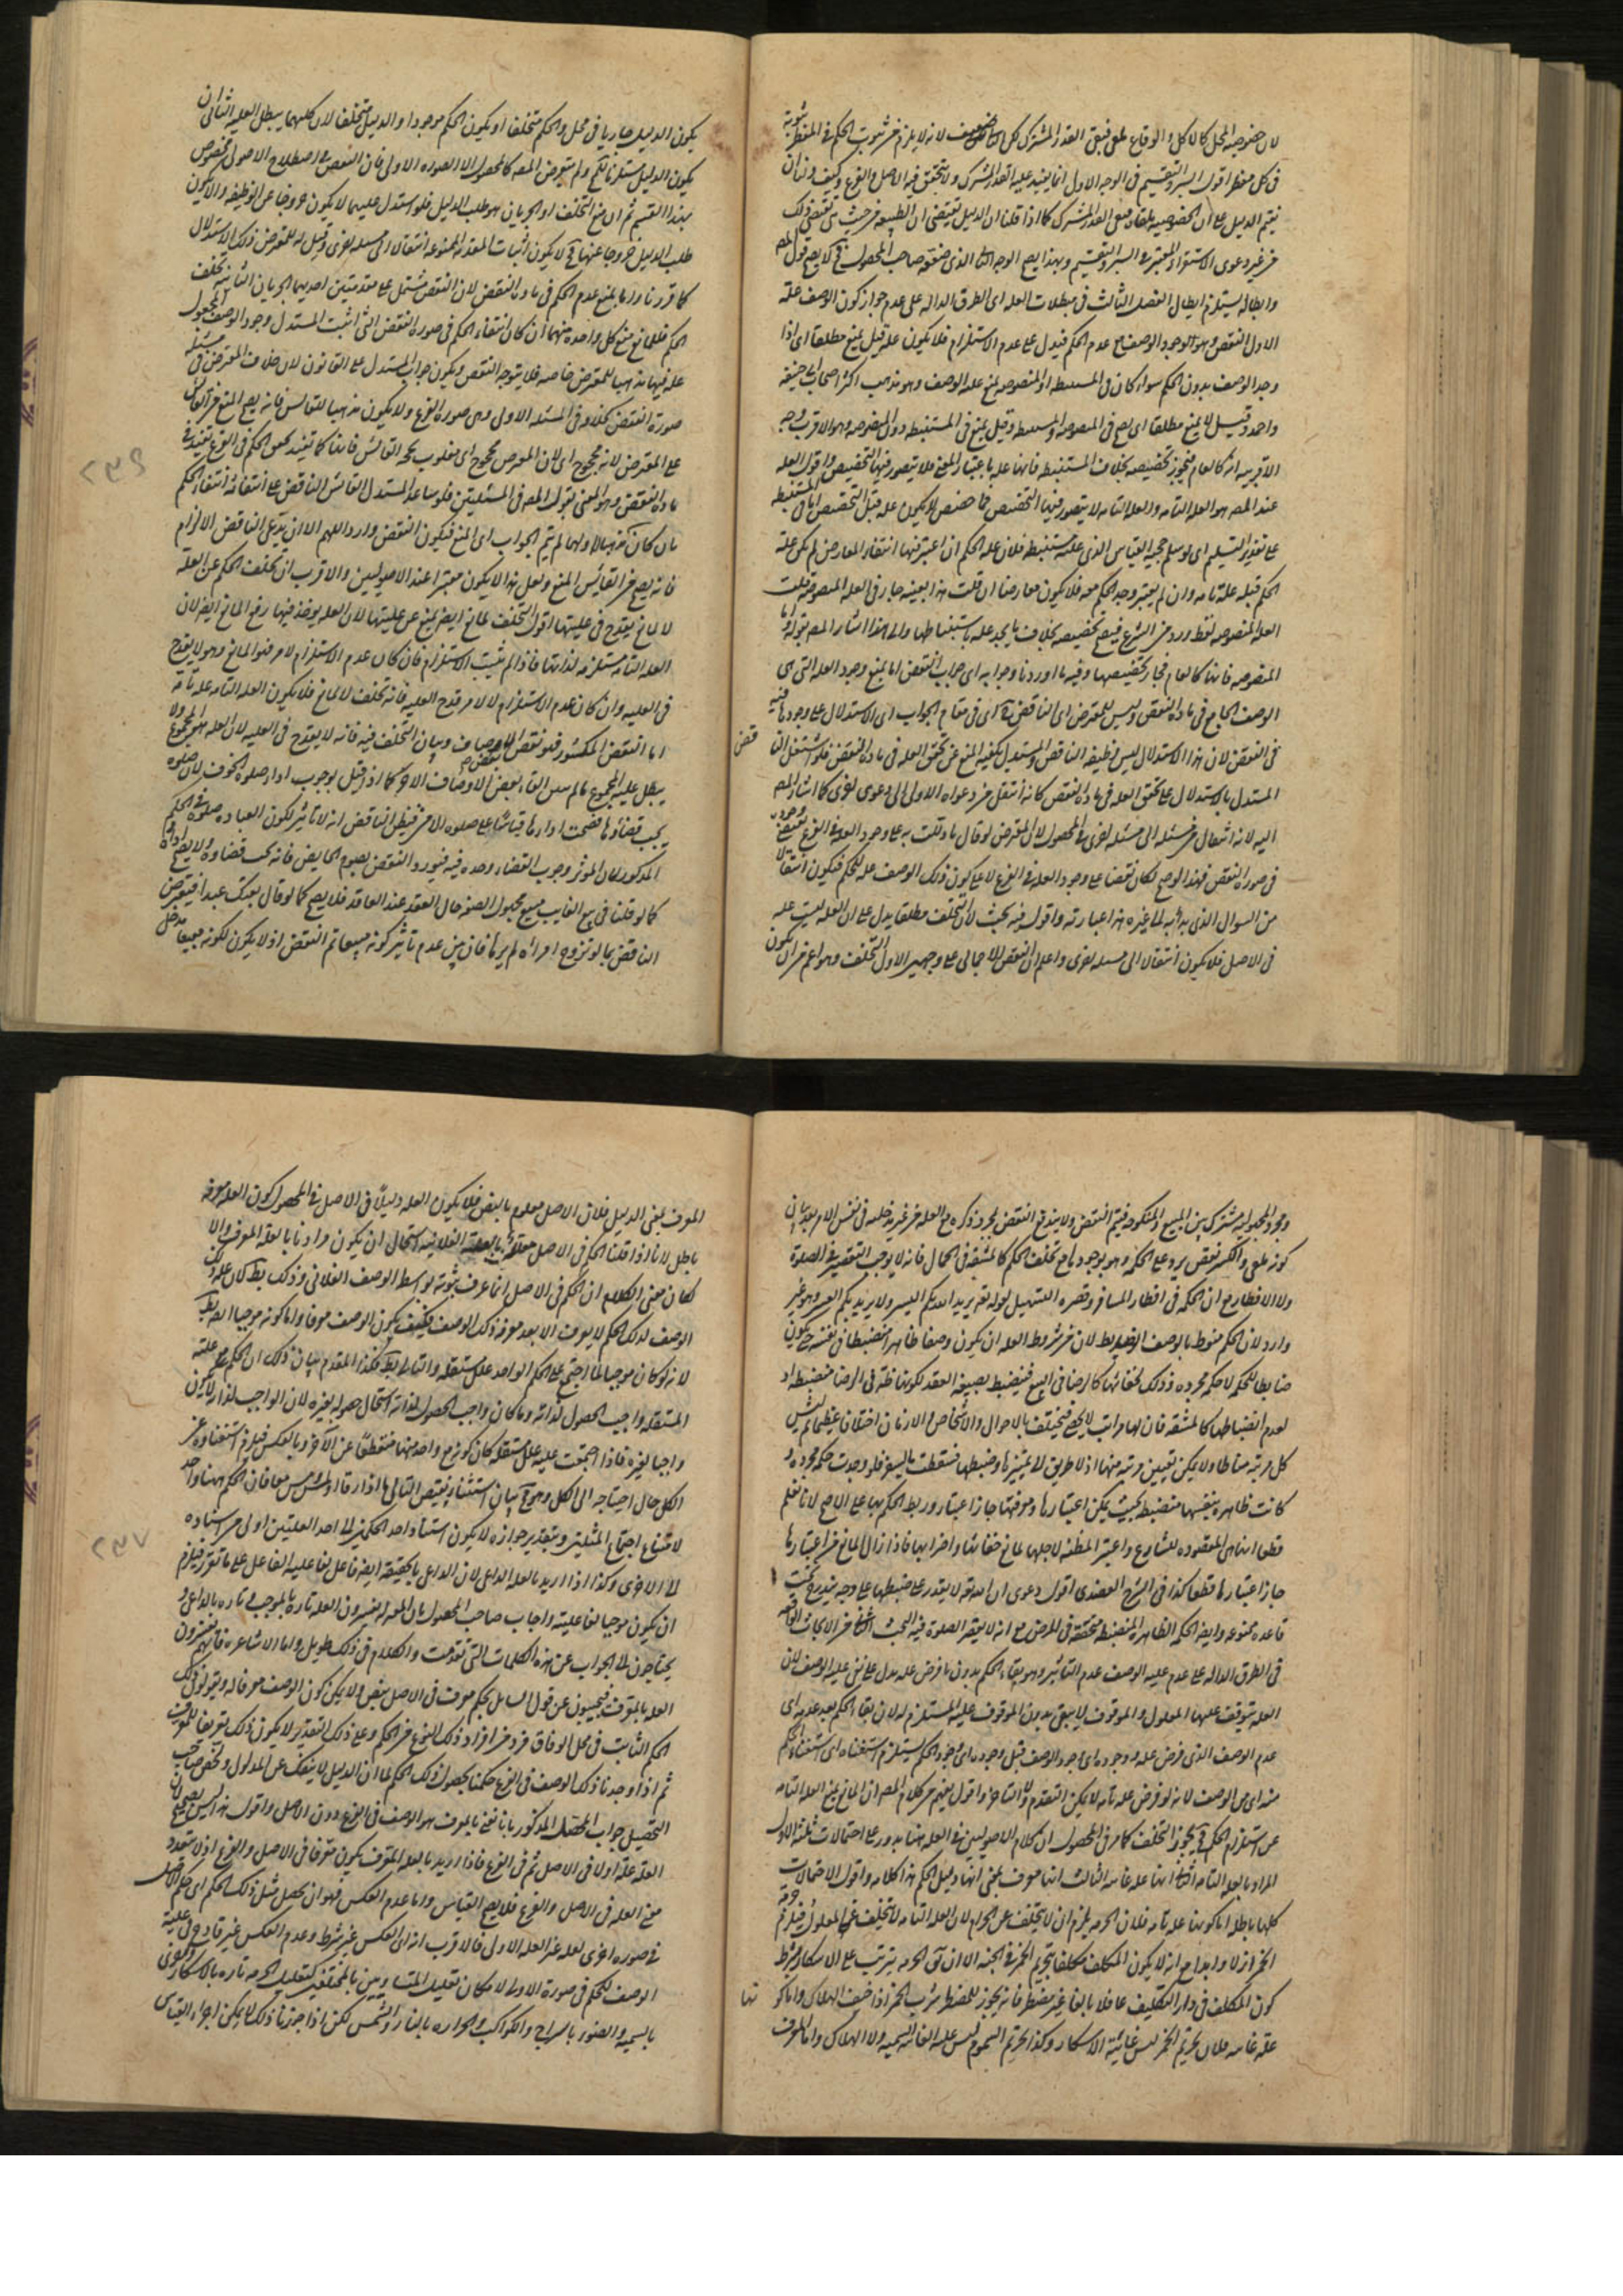 لان خصوصية المحل كالاكل والوقاع ملغى فبقى القدر المشترك لكن ضعيف لانه لا يلزم من ثبوت الحكم في المفطر ثبوته
في كل مفطر اقول السبر والتقسيم في الوجه الاول انما يفيد علية القدر المشترك ولا يتحقق فيه الاصل والفرع وكيف ولنا ان
نقيم الدليل على ان الخصوصية ملغاة فبقى القدر المشترك كما اذا قلنا ان الدليل يقتضى ان الطبيعة من حيث هي تقتضى ذلك
من غير دعوى الاستقراء المعتبر في السبر والتقسيم وبهذا يصح الوجه الذى ضعفه صاحب المحصول فلا يصح قول المص
وابطاله يستلزم ابطال الفصل الثالث في مبطلات العلة اى الطرق الدالة على عدم جواز كون الوصف علة
الاول النقض وهو وجود الوصف مع عدم الحكم فيدل على عدم الاستلزام فلا يكون علة قيل يمنع مطلقا اى اذا
وجد الوصف بدون الحكم سواء كان في المستنبطة او المنصوصة يمنع علة الوصف وهو مذهب اكثر اصحاب ابى حنيفة
واحمد وقيل لا يمنع مطلقا اى لا في المنصوصة ولا المستنبطة وقيل يمنع في المستنبطة دون المنصوصة وهو الاقرب وجه
الاقربية انه كالعام فيجوز تخصيصه بخلاف المستنبطة فانها علة باعتبار المعنى فلا يتصور فيها التخصيص واقول العلة
عند المص هو العلة التامة والعلة التامة لا يتصور فيها التخصيص فما خصص لا يكون علة قبل التخصيص اما في المستنبطة
على تقدير التسليم اى لو سلم حجية القياس الذى علته مستنبطة فلان علة الحكم ان اعتبر فيها انتفاء المعارض لم تكن علة
الحكم قبله علة تامة وان لم يعتبر وجد الحكم معه فلا يكون معارضا ان قلت هذا بعينه جار في العلة المنصوصة قلت
العلة المنصوصة لفظ ورد من الشرع فيصح تخصيصه بخلاف ما يجد علة باستنباطها والى هذا اشار المص بقوله واما
المنصوصة فانها كالعام فجاز تخصيصها وفيه ما اوردنا وجوابه اى جواب النقض اما بمنع وجود العلة التى هى
الوصف الجامع في مادة النقض وليس للمعترض اى الناقض اى في مقام الجواب اى الاستدلال على وجودها فيه
في النقض لان هذا الاستدلال ليس وظيفة الناقض والمستدل يكفيه المنع عن تحقق العلة في مادة النقض فلو اشتغل النا
قض
المستدل بالاستدلال على تحقق العلة في مادة النقض كانه انتقل من دعواه الاولى الى دعوى اخرى كما اشار المص
اليه لانه انتقال من مسئلة الى مسئلة اخرى في المحصول لان المعترض لو قال ما دللت به على وجود العلة في الفرع يقتضى وجوده
في صورة النقض فهذا لو صح لكان نقضا على وجود العلة في الفرع لا على كون ذلك الوصف علة للحكم فيكون انتقالا
من السوال الذى بدأ به الى غيره هذا عبارته واقول فيه بحث لان التخلف مطلقا يدل على ان العلة ليست علة
في الاصل فلا يكون انتقالا الى مسئلة اخرى واعلم ان النقض الاجمالى على وجهين الاول التخلف وهو اعم من ان يكون
يكون الدليل جاريا في محل والحكم متخلفا او يكون الحكم موجودا والدليل متخلفا لان كليهما يبطل العلية الثانى ان
يكون الدليل مستلزما لحكم ولم يتعرض المص كالمحصول الا للصورة الاولى فان النقض في اصطلاح الاصول مخصوص
بهذا القسم ثم ان منع التخلف او الجريان هو طلب الدليل فلو استدل عليهما لا يكون خروجا عن الوظيفة والا يكون
طلب الدليل خروجا عنها فح لا يكون اثبات المقدمة الممنوعة انتقالا الى مسئلة اخرى وقيل له للمعترض ذلك الاستدلال
كما قررنا واما بمنع عدم الحكم في مادة النقض لان النقض مشتمل على مقدمتين احديهما الجريان الثانية تخلف
الحكم فللمانع منع كل واحدة منهما ان كان انتفاء الحكم في صورة النقض التى اثبت المستدل وجود الوصف المجعول
علة فيها مذهبا للمعترض خاصة فلا يتوجه النقض ويكون جواب المستدل على القانون لان خلاف المعترض في مسئلة
صورة النقض كخلافه في المسئلة الاولى وهى صورة الفرع ولا يكون مذهبا للقائس فانه يصح المنع من القائس
على المعترض لانه محجوج اى لان المعترض محجوج اى مغلوب بحجة القائس فانها كما تفيد تحقق الحكم في الفرع تفيد في
مادة النقض وهو المعنى بقول المص في المسئلتين فلو ساعد المستدل القائس الناقض على انتفائه انتفاء الحكم
بان كان مذهبا لهما لم يتم الجواب اى المنع فيكون النقض واردا اللهم الا ان يدعى الناقض الالزام
فانه يصح من القائس المنع ولعل هذا لا يكون معتبرا عند الاصوليين والاقرب ان تخلف الحكم عن العلة
لا لمانع يقدح في عليتها اقول التخلف لمانع ايضا يمنع عن عليتها لان العلة يوخذ فيها رفع المانع ايضا لان
العلة التامة مستلزمة لذاتها فاذا لم يثبت الاستلزام فان كان عدم الاستلزام لامر فهو المانع وهو لا يقدح
في العلية وان كان عدم الاستلزام لا لامر قدح العلية فانه تخلف لا لمانع فلا يكون العلة التامة علة تامة
اما النقض المكسور فهو نقض بعض الاوصاف وبيان التخلف فيه فانه لا يقدح في العلية لان العلة هو المجموع ولا
يبطل علية المجموع ما لم يبين الغاء بعض الاوصاف الاخر كما اذا قيل بوجوب اداء صلوة الخوف لان صلوة
يجب قضاؤها فصحت اداؤها قياسا على صلوة الامن فيظن الناقض انه لا تاثير لكون العبادة صلوة في الحكم
المذكور كان الموثر وجوب القضاء وحده فيه فيورد النقض بصوم الحايض فانه يجب قضاؤه ولا يصح اداؤه
كما لو قلنا في بيع الغايب مبيع مجهول الصفة حال العقد عند العاقد فلا يصح كما لو قال بعتك عبدا فيعترض
الناقض بما لو تزوج امراة لم يرها فان بين عدم تاثير كونه مبيعا تم النقض اذ لا يكون لكونه مبيعا مدخل
٢٣٦
ومجرد المجهولية مشترك بين المبيع والمنكوحة فيتم النقض ولا يندفع النقض لمجرد ذكره مع العلة من غير مدخلية في نفس الامر بعد بيان
كونه ملغى والكسر نقض يرد على الحكمة وهو وجودها مع تخلف الحكم كالمشقة في الحمال فانه لا يوجب التقصير في الصلوة
ولا الافطار مع ان الحكمة في افطار المسافر وقصره التسهيل لقوله تعه يريد الله بكم اليسر ولا يريد بكم العسر وهو غير
وارد لان الحكم منوط بالوصف الضابط لان من شروط العلة ان يكون وصفا ظاهرا منضبطا في نفسه حتى يكون
ضابطا للحكم لا حكمة مجردة وذلك لخفائها كالرضا في البيع فينضبط بصيغة العقد لكونها مظنة في الرضا منضبطة او
لعدم انضباطها كالمشقة فان لها مراتب لا تحصى فيختلف بالاحوال والاشخاص والازمان اختلافا عظيما ثم ليس
كل مرتبة مناطا ولا يمكن تعيين مرتبة منها اذ لا طريق الى تمييزها وضبطها فسقطت بالسفر فلو وجدت حكمة مجردة و
كانت ظاهرة بنفسها منضبطة بحيث يمكن اعتبارها ومعرفتها جاز اعتبار وربط الحكم بها على الاصح لانا نعلم
قطعا انها هى المقصودة للشارع واعتبر المظنة لاجلها لمانع خفائها واضطرابها فاذا زال المانع من اعتبارها
جاز اعتبارها قطعا كذا في الشرح العضدى اقول دعوى ان الله تعه لا يقدر على ضبطها على وجه يندرج تحت
قاعدة ممنوعة وايضا الحكمة الظاهرة المنضبطة متحققة في المرض مع انه لا يقصر الصلوة فيه البحث الثانى من الابحاث الواقعة
في الطرق الدالة على عدم علية الوصف عدم التاثير وهو بقاء الحكم بدون ما فرض علة يدل على نفى علية الوصف لان
العلة يتوقف عليها المعلول والموقوف لا يبقى بدون الموقوف عليه المستلزم له لان بقاء الحكم بعد عدمه اى
عدم الوصف الذى فرض علة ووجوده اى وجود الوصف قبل وجوده اى وجود الحكم يستلزم استغناه اى استغناء الحكم
منه اى من الوصف لانه لو فرض علة تامة لا يمكن التقدم ولا التاخر واقول يفهم من كلام المص ان المانع يمنع العلة التامة
عن استلزام الحكم فح يجوز التخلف كما مر في المحصول ان كلام الاصوليين في العلة ههنا يدور على احتمالات ثلثة الاول
المراد بالعلة التامة الثانى انها علة غائية الثالث انها معرف بمعنى انها دليل الحكم هذا كلامه واقول الاحتمالات
كلها باطلة اما كونها علة تامة فلان الحرمة يلزم ان لا يتخلف عن الحرام لان العلة التامة لا يتخلف عن المعلول فيلزم حرمة
الخمر ازلا وابدا مع انه لا يكون المكلف مكلفا بتحريم الخمر في الجنة الا ان يق الحرمة يترتب على الاسكار بشرط
كون المكلف في دار التكليف عاقلا بالغا غير مضطر فانه يجوز للمضطر شرب الخمر اذا خيف الهلاك واما كو
نها
علة غائية فلان تحريم الخمر ليس غايته الاسكار وكذا تحريم السموم ليس علته الغائية السمية ولا الهلاك واما المعرف
المعرف بمعنى الدليل فلان الاصل معلوم بالنص فلا يكون العلة دليلا في الاصل في المحصول كون العلة معرفة
باطل لانا اذا قلنا الحكم في الاصل معلل بالعلة الفلانية استحال ان يكون مرادنا بالعلة المعرف والا
لكان معنى الكلام ان الحكم في الاصل انما عرف ثبوته بواسطة الوصف الفلانى وذلك بط لان علية
الوصف لذلك الحكم لا يعرف الا بعد معرفة ذلك الوصف فكيف يكون الوصف معرفا واما كونه موجبا ايضا بط
لانه لو كان موجبا لما اجتمع على الحكم الواحد علل مستقلة والتالى بط فكذا المقدم بيان ذلك ان الحكم مع علته
المستقلة واجب الحصول لذاته وما كان واجب الحصول لذاته استحال حصوله بغيره لان الواجب لذاته لا يكون
واجبا بغيره فاذا اجتمعت عليه علل مستقلة كان كونه مع واحد منها منقطعا عن الآخر وبالعكس فيلزم استغناؤه عن
الكل حال احتياجه الى الكل وهو مح بيان استثناء نقيض التالى ما اذا زنا وارتد ولمس ومس معا فان الحكم ههنا واحد
لامتناع اجتماع المثلين وبتقدير جوازه لا يكون استناد احد الحكمين الى احد العلتين اولى من استناده
الى الاخرى وكذا اذا اريد بالعلة الداعى لان الداعى بالحقيقة ايضا فاعل لفاعلية الفاعل على ما تقرر فيلزم
ان يكون موجبا لفاعليته واجاب صاحب المحصول بان المعتزلة يفسرون العلة تارة بالموجب وتارة بالداعى و
يحتاجون الى الجواب عن هذه الكلمات التى تقدمت والكلام في ذلك طويل واما الاشاعرة فانهم يفسرون
العلة بالمعرف فيجيبون عن قول السايل الحكم معرف في الاصل بنص ولا يمكن كون الوصف معرفا له ويقولون ذلك
الحكم الثابت في محل الوفاق فرد من افراد ذلك النوع من الحكم وعلى ذلك التقدير لا يكون ذلك تعريفا للمعرف
ثم اذا وجدنا ذلك الوصف في الفرع حكمنا بحصول ذلك الحكم لما ان الدليل لا ينفك عن المدلول ولخص صاحب
التحصيل جواب المحصل المذكور بانا نعنى بالمعرف هو الوصف في الفرع دون الاصل واقول هذا ليس بصحيح لان
العلة علة اولا في الاصل ثم في الفرع فاذا اريد بالعلة المعرف يكون معرفا في الاصل والفرع اذ لا يتعدد
معنى العلة في الاصل والفرع فلا يصح القياس واما عدم العكس فهو ان يحصل مثل ذلك الحكم اى حكم الاصل
في صورة اخرى لعلة غير العلة الاولى فالاقرب انه اى العكس غير شرط وعدم العكس غير قادح في علية
الوصف للحكم في صورة الاولى لامكان تعليل المتساويين بالمختلفين كتعليل الحرمة تارة بالاسكار واخرى
بالسمية والضوء بالسراج والكواكب والحرارة بالنار والشمس لكن اذا جوزنا ذلك لا يمكن اجراء القياس
٢٣٧